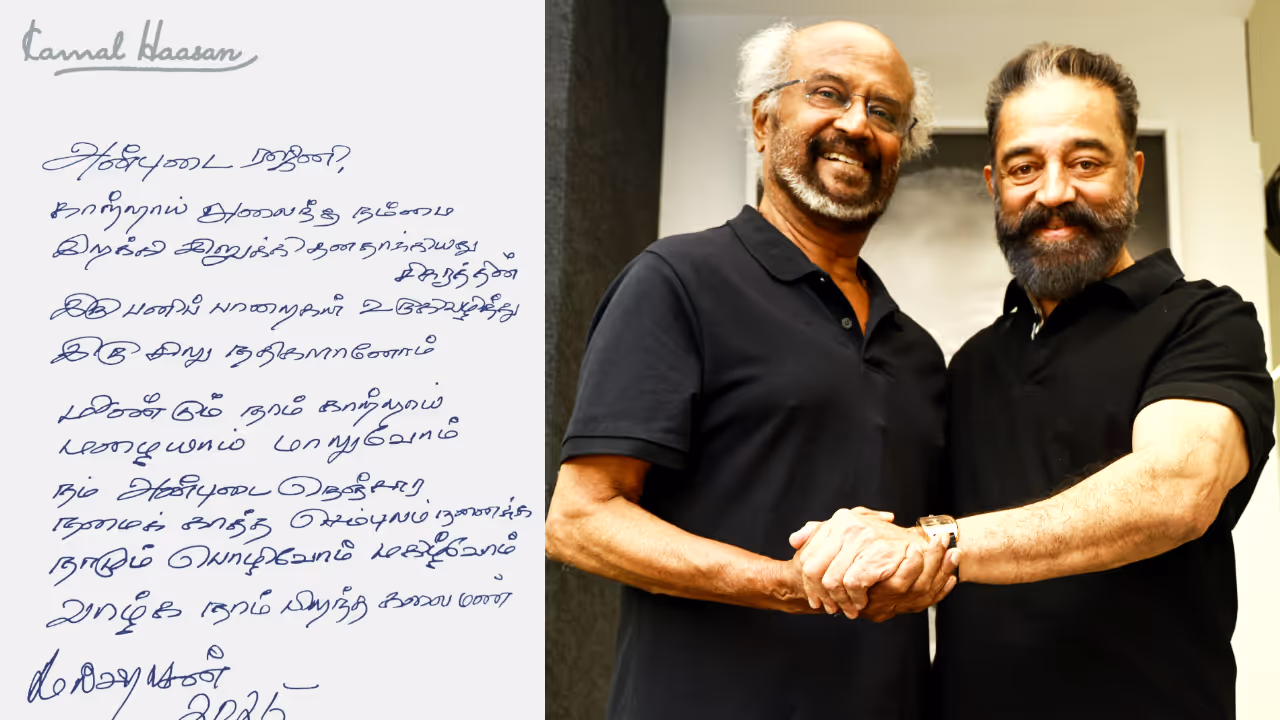 Kamal Haasan
அன்புடை ரஜினி,
காற்றாய் அலைந்த நம்மை
இறக்கி இறுக்கி தனதாக்கியது
சிகரத்தின்
இரு பனிப் பாறைகள் உருகிவழிந்து
இரு சிறு நதிகளானோம்
மீண்டும் நாம் காற்றாய்
மழையாய் மாறுவோம்
நம் அன்புடை நெஞ்சார
நமைக் காத்த செம்புலம் நனைக்க
நாடும் பொழிவோம் மகிழ்வோம்
வாழ்க நாம் பிறந்த கலைமண்
2025